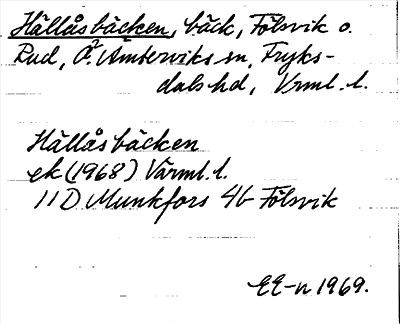 Hällåsbäcken, bäck, Fölsvik o.
Rud, Ö. Ämterviks sn, Fryks-
dals hd, Vrml. l.
Hällåsbäcken
ek (1968) Värml. l.
11 D Munkfors 4b Fölsvik
EE-n 1969.